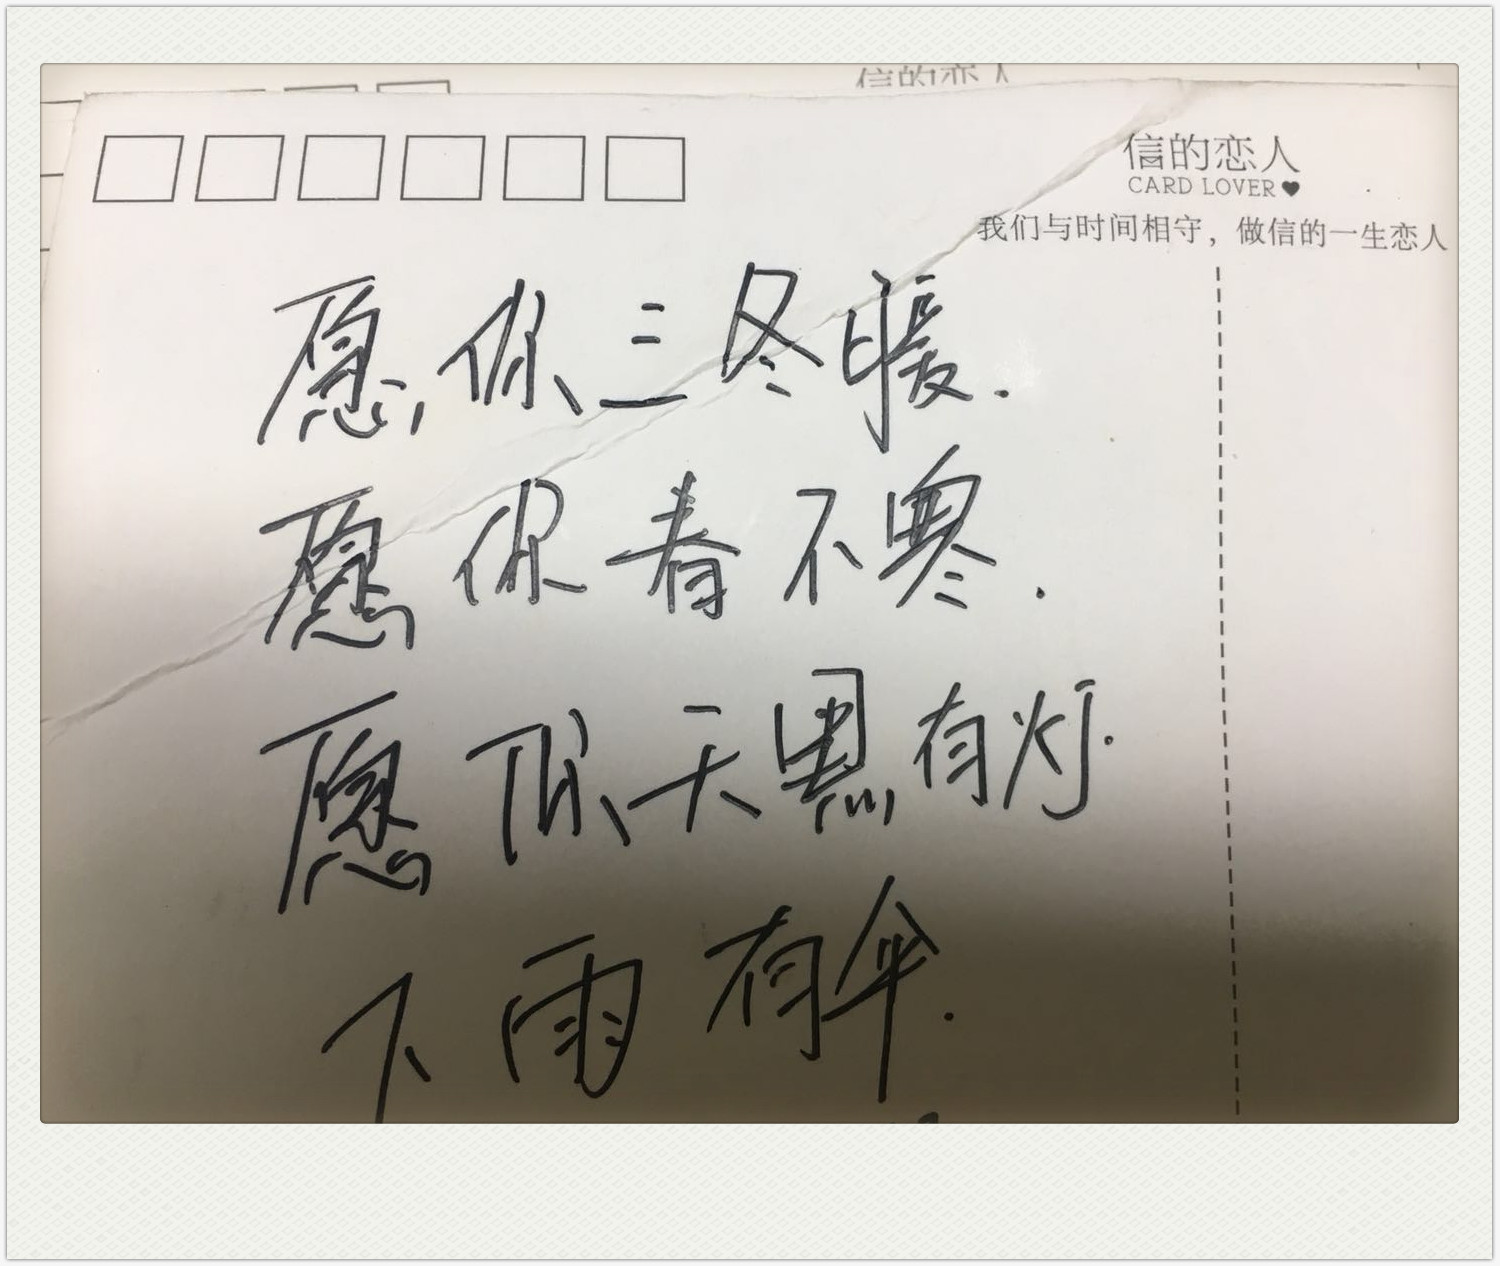 信的恋人
信的恋人
CARD LOVER♥
我们与时间相守，做信的一生恋人
愿你三冬暖.
愿你春不寒.
愿你天黑有灯.
下雨有伞.